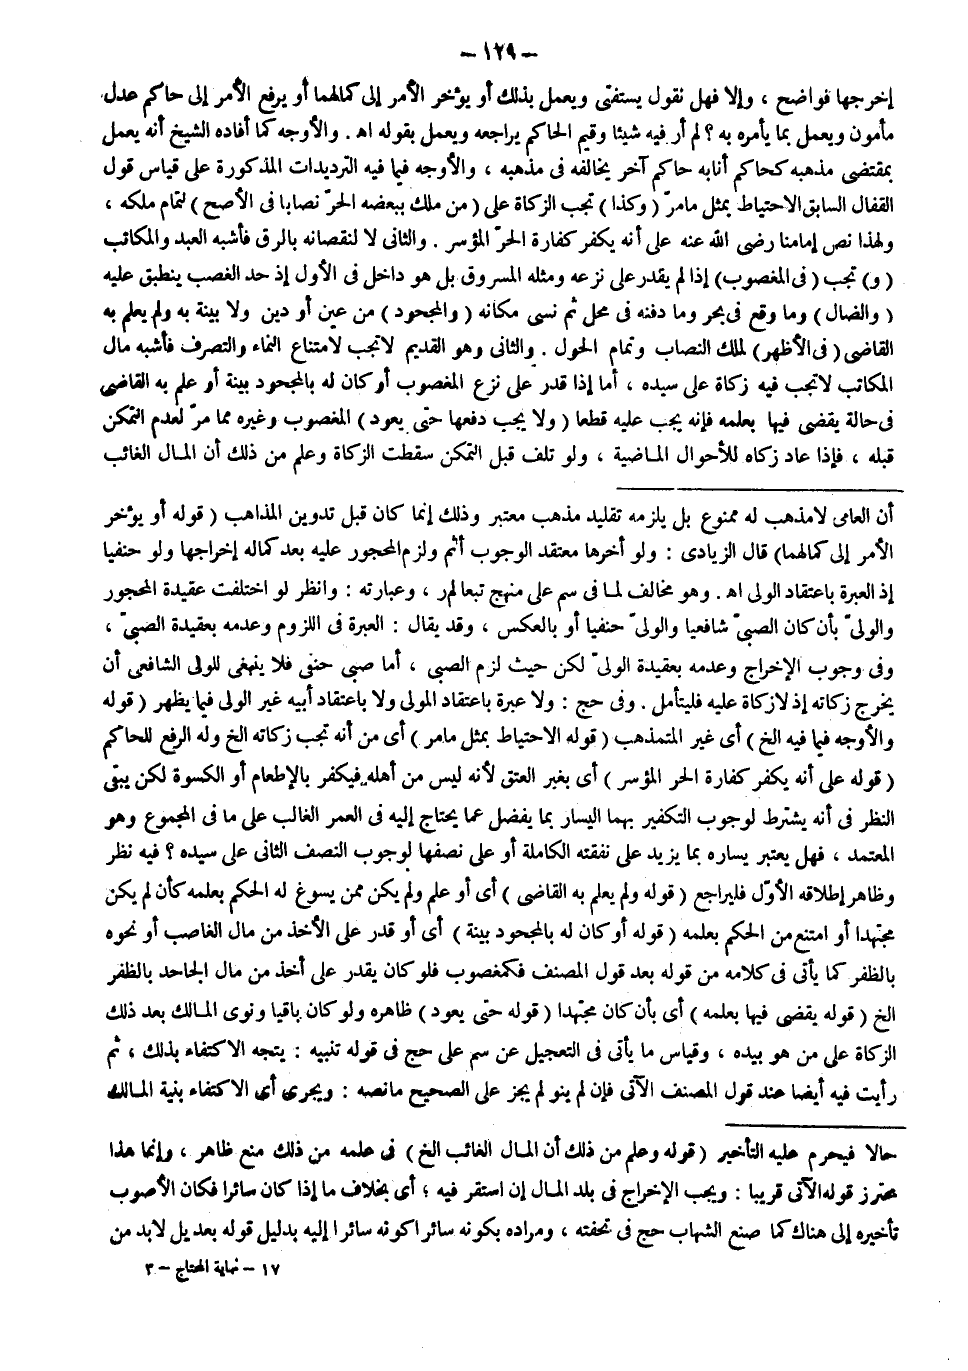 – ١٢٩ –
إخرجها فواضح ، وإلا فهل نقول يستفتى ويعمل بذلك أو يؤخر الأمر إلى كمالهما أو يرفع الأمر إلى حاكم عدل
مأمون ويعمل بما يأمره به ؟ لم أر فيه شيئا وقيم الحاكم يراجعه ويعمل بقوله اه . والأوجه كما أفاده الشيخ أنه يعمل
بمقتضى مذهبه كحاكم أنابه حاكم آخر يخالفه فى مذهبه ، والأوجه فيما فيه الترديدات المذكورة على قياس قول
القفال السابق الاحتياط بمثل مامرّ ( وكذا ) تجب الزكاة على ( من ملك ببعضه الحرّ نصابا فى الأصح ) لتمام ملكه ،
ولهذا نص إمامنا رضى الله عنه على أنه يكفر كفارة الحرّ المؤسر . والثانى لا لنقصانه بالرق فأشبه العبد والمكاتب
( و ) تجب ( فى المغصوب ) إذا لم يقدر على نزعه ومثله المسروق بل هو داخل فى الأول إذ حد الغصب ينطبق عليه
( والضال ) وما وقع فى بحر وما دفنه فى محل ثم نسى مكانه ( والمجحود ) من عين أو دين ولا بينة به ولم يعلم به
القاضى ( فى الأظهر ) لملك النصاب وتمام الحول . والثانى وهو القديم لاتجب لامتناع النماء والتصرف فأشبه مال
المكاتب لاتجب فيه زكاة على سيده ، أما إذا قدر على نزع المغصوب أو كان له بالمجحود بينة أو علم به القاضى
فى حالة يقضى فيها بعلمه فإنه يجب عليه قطعا ( ولا يجب دفعها حتى يعود ) المغصوب وغيره مما مرّ لعدم التمكن
قبله ، فإذا عاد زكاه للأحوال الماضية ، ولو تلف قبل التمكن سقطت الزكاة وعلم من ذلك أن المال الغائب
أن العامى لامذهب له ممنوع بل يلزمه تقليد مذهب معتبر وذلك إنما كان قبل تدوين المذاهب ( قوله أو يؤخر
الأمر إلى كمالهما ) قال الزيادى : ولو أخرها معتقد الوجوب أثم ولزم المحجور عليه بعد كماله إخراجها ولو حنفيا
إذ العبرة باعتقاد الولى اه . وهو مخالف لما فى سم على منهج تبعا لم ر ، وعبارته : وانظر لو اختلفت عقيدة المحجور
والولىّ بأن كان الصبىّ شافعيا والولىّ حنفيا أو بالعكس ، وقد يقال : العبرة فى اللزوم وعدمه بعقيدة الصبىّ ،
وفى وجوب الإخراج وعدمه بعقيدة الولىّ لكن حيث لزم الصبى ، أما صبى حنفى فلا ينبغى للولى الشافعى أن
يخرج زكاته إذ لازكاة عليه فليتأمل . وفى حج : ولا عبرة باعتقاد المولى ولا باعتقاد أبيه غير الولى فيما يظهر ( قوله
والأوجه فيما فيه الخ ) أى غير المتمذهب ( قوله الاحتياط بمثل مامر ) أى من أنه تجب زكاته الخ وله الرفع للحاكم
( قوله على أنه يكفر كفارة الحر المؤسر ) أى بغير العتق لأنه ليس من أهله فيكفر بالإطعام أو الكسوة لكن يبقى
النظر فى أنه يشترط لوجوب التكفير بهما اليسار بما يفضل عما يحتاج إليه فى العمر الغالب على ما فى المجموع وهو
المعتمد ، فهل يعتبر يساره بما يزيد على نفقته الكاملة أو على نصفها لوجوب النصف الثانى على سيده ؟ فيه نظر
وظاهر إطلاقه الأوّل فليراجع ( قوله ولم يعلم به القاضى ) أى أو علم ولم يكن ممن يسوغ له الحكم بعلمه كأن لم يكن
مجتهدا أو امتنع من الحكم بعلمه ( قوله أو كان له بالمجحود بينة ) أى أو قدر على الأخذ من مال الغاصب أو نحوه
بالظفر كما يأتى فى كلامه من قوله بعد قول المصنف فكمغصوب فلو كان يقدر على أخذ من مال الجاحد بالظفر
الخ ( قوله يقضى فيها بعلمه ) أى بأن كان مجتهدا ( قوله حتى يعود ) ظاهره ولو كان باقيا ونوى المالك بعد ذلك
الزكاة على من هو بيده ، وقياس ما يأتى فى التعجيل عن سم على حج فى قوله تنبيه : يتجه الاكتفاء بذلك ، ثم
رأيت فيه أيضا عند قول المصنف الآتى فإن لم ينو لم يجز على الصحيح مانصه : ويجرى أى الاكتفاء بنية المالك
حالا فيحرم عليه التأخير ( قوله وعلم من ذلك أن المال الغائب الخ ) فى علمه من ذلك منع ظاهر ، وإنما هذا
محترز قوله الآتى قريبا : ويجب الإخراج فى بلد المال إن استقر فيه ؛ أى بخلاف ما إذا كان سائرا فكان الأصوب
تأخيره إلى هناك كما صنع الشهاب حج فى تحفته ، ومراده بكونه سائرا كونه سائرا إليه بدليل قوله بعد بل لابد من
١٧ – نهاية المحتاج – ٣